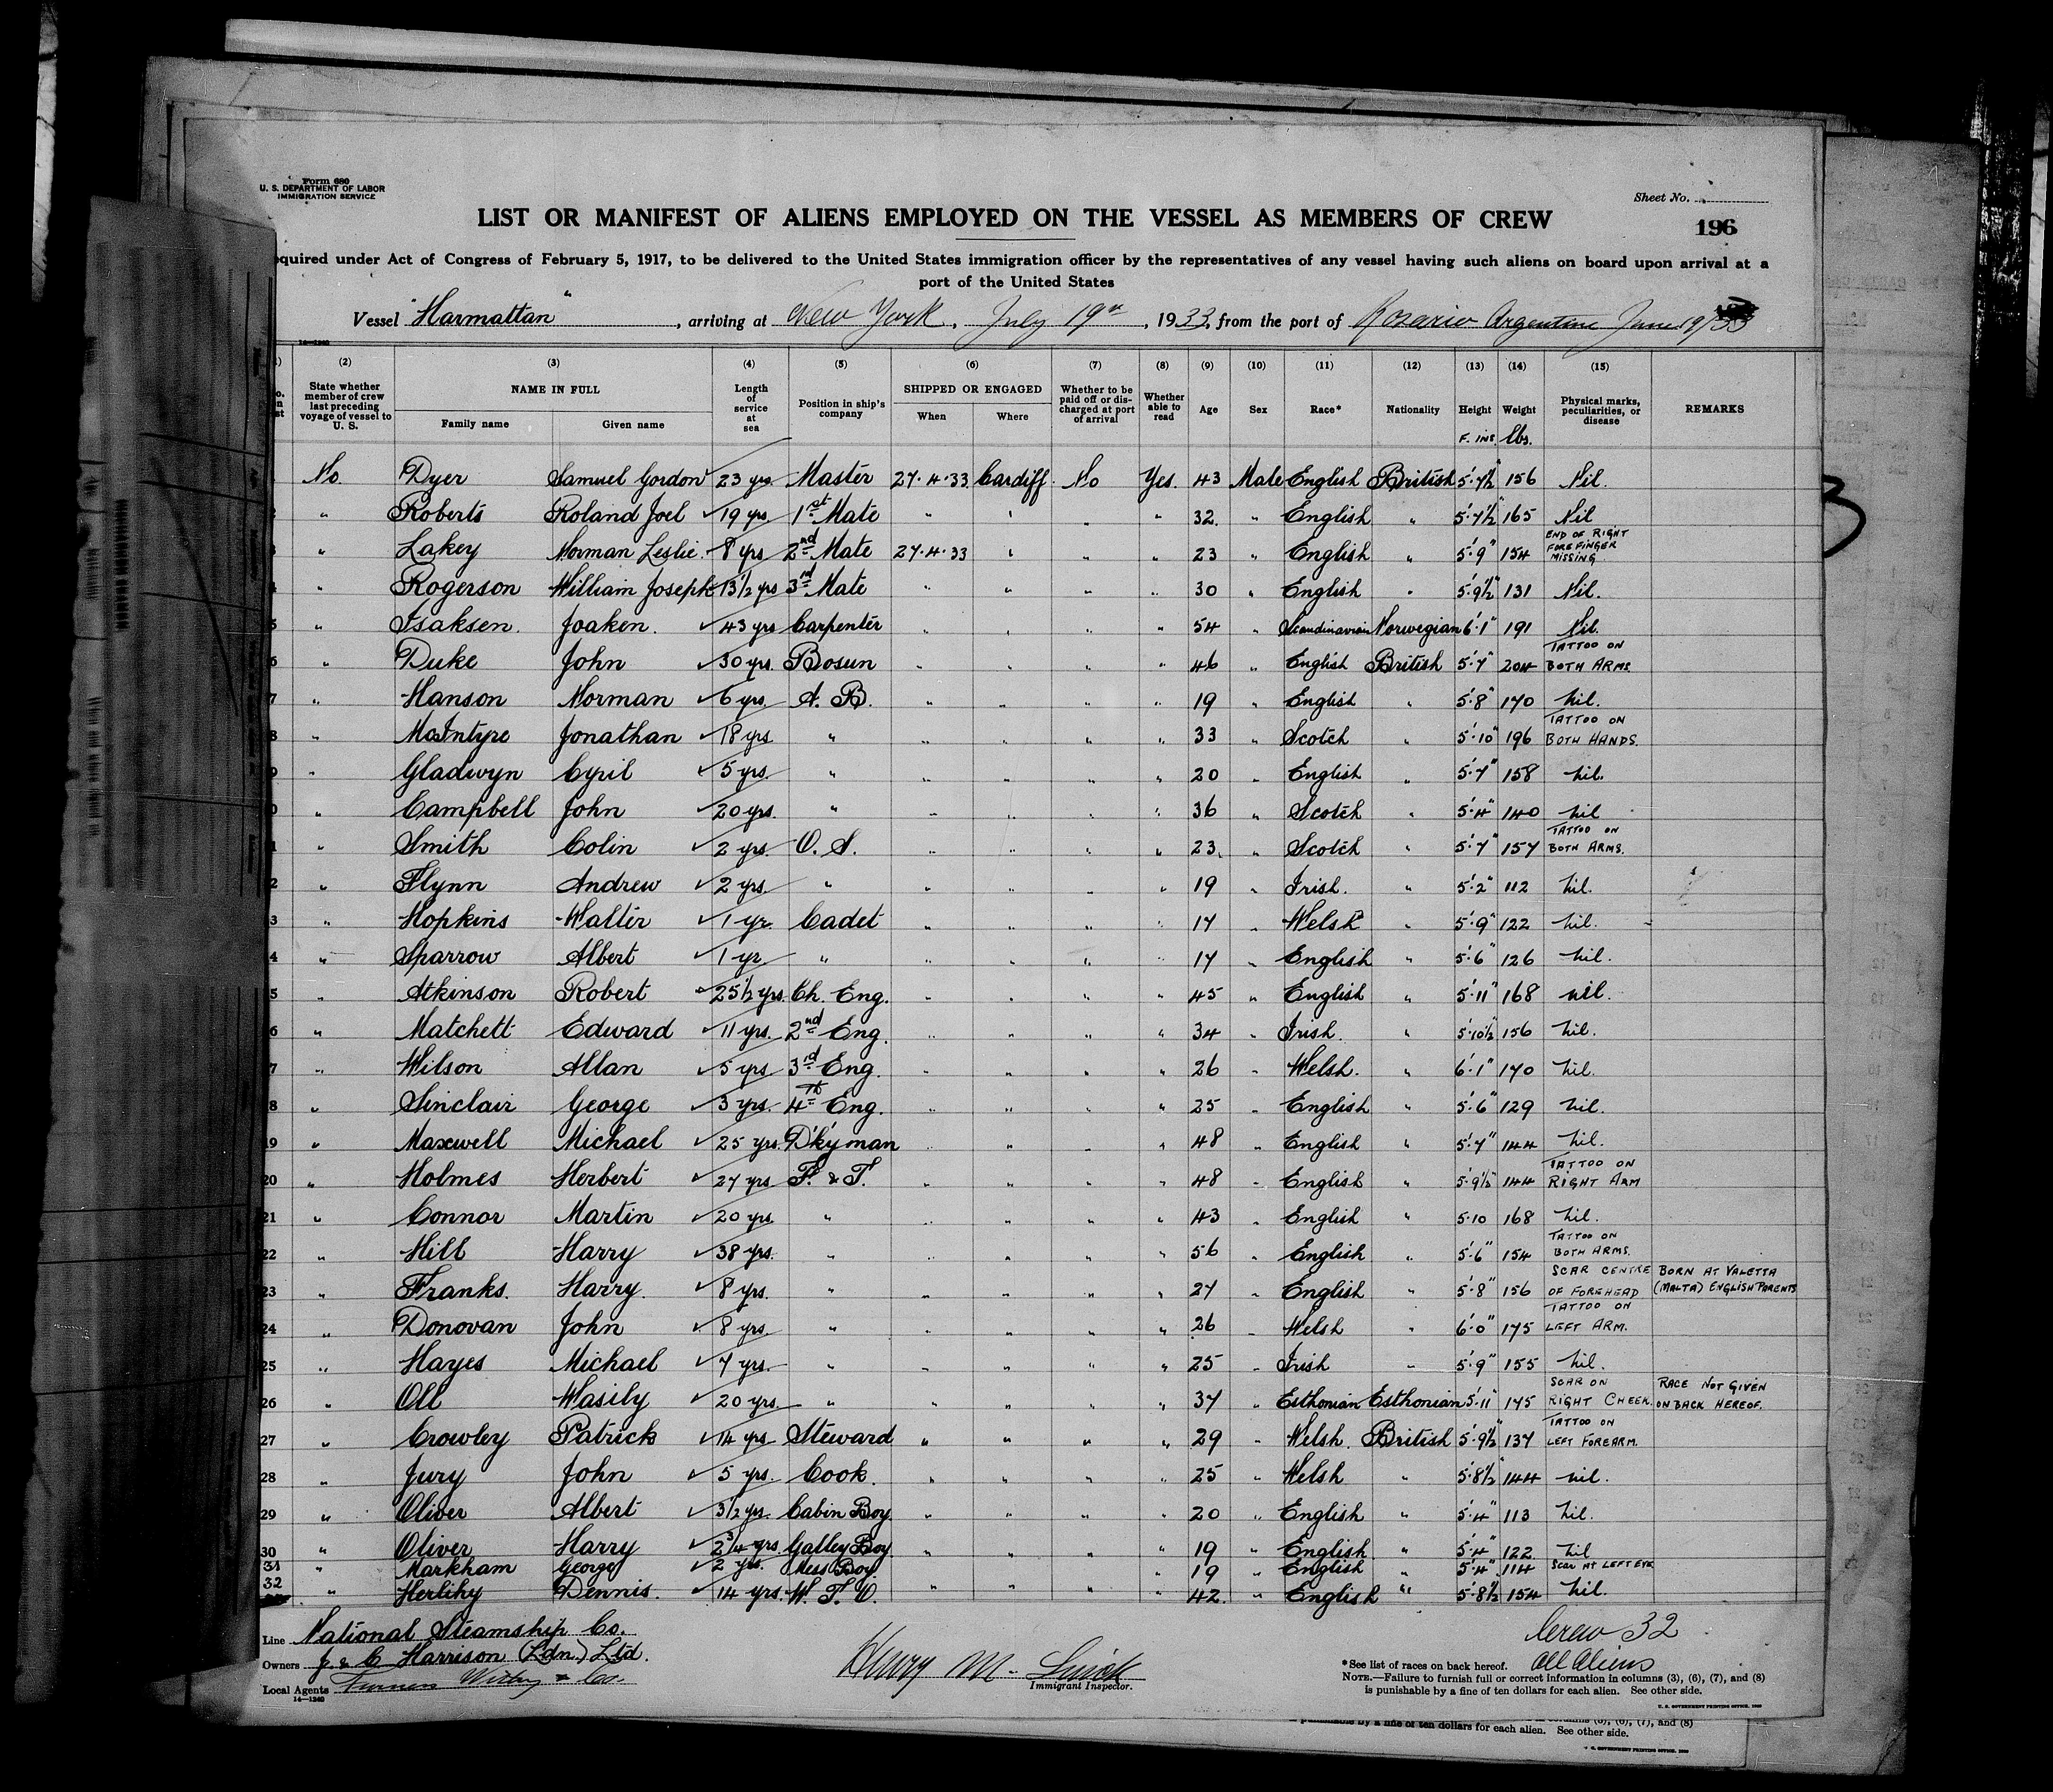 Form 680
U. S. DEPARTMENT OF LABOR
IMMIGRATION SERVICE
Sheet No.
LIST OR MANIFEST OF ALIENS EMPLOYED ON THE VESSEL AS MEMBERS OF CREW
196
quired under Act of Congress of February 5, 1917, to be delivered to the United States immigration officer by the representatives of any vessel having such aliens on board upon arrival at a
port of the United States
Vessel "Harmattan", arriving at New York, July 19th, 1933, from the port of Rosario Argentine June 19/33
14—1240
(2) (3) (4) (5) (6) (7) (8) (9) (10) (11) (12) (13) (14) (15)
State whether member of crew last preceding voyage of vessel to U. S. NAME IN FULL Family name Given name Length of service at sea Position in ship's company SHIPPED OR ENGAGED When Where Whether to be paid off or discharged at port of arrival Whether able to read Age Sex Race* Nationality Height Weight Physical marks, peculiarities, or disease REMARKS
F. INS. lbs.
No Dyer Samuel Gordon 23 yrs Master 27.4.33 Cardiff No Yes 43 Male English British 5'.7½" 156 Nil.
" Roberts Roland Joel 19 yrs 1st Mate " " " " 32 " English " 5'.7½" 165 Nil
" Lakey Norman Leslie 8 yrs 2nd Mate 27.4.33 " " " 23 " English " 5'.9" 154 END OF RIGHT FOREFINGER MISSING
" Rogerson William Joseph 13½ yrs 3rd Mate " " " " 30 " English " 5'.9½" 131 Nil.
5 " Isaksen Joaken 43 yrs Carpenter " " " " 54 " Scandinavian Norwegian 6'.1" 191 Nil.
6 " Duke John 30 yrs Bosun " " " " 46 " English British 5'.7" 204 TATTOO ON BOTH ARMS.
7 " Hanson Norman 6 yrs A. B. " " " " 19 " English " 5'.8" 170 nil.
8 " McIntyre Jonathan 18 yrs " " " " " 33 " Scotch " 5'.10" 196 TATTOO ON BOTH HANDS.
9 " Gladwyn Cyril 5 yrs " " " " " 20 " English " 5'.7" 158 nil.
0 " Campbell John 20 yrs. " " " " " 36 " Scotch " 5'.4" 140 nil
1 " Smith Colin 2 yrs. O. S. " " " " 23 " Scotch " 5'.7" 157 TATTOO ON BOTH ARMS.
2 " Flynn Andrew 2 yrs " " " " " 19 " Irish. " 5'.2" 112 nil.
3 " Hopkins Walter 1 yr. Cadet " " " " 17 " Welsh " 5'.9" 122 nil.
4 " Sparrow Albert 1 yr " " " " " 17 " English " 5'.6" 126 nil.
5 " Atkinson Robert 25½ yrs. Ch. Eng. " " " " 45 " English " 5'.11" 168 nil.
6 " Matchett Edward 11 yrs. 2nd Eng. " " " " 34 " Irish. " 5'.10½" 156 nil.
7 " Wilson Allan 5 yrs 3rd Eng. " " " " 26 " Welsh. " 6'.1" 170 nil.
8 " Sinclair George 3 yrs. 4th Eng. " " " " 25 " English " 5'.6" 129 nil.
19 " Maxwell Michael 25 yrs. D'kyman " " " " 48 " English " 5'.7" 144 nil.
20 " Holmes Herbert 27 yrs F. & T. " " " " 48 " English " 5'.9½" 144 TATTOO ON RIGHT ARM
21 " Connor Martin 20 yrs " " " " " 43 " English " 5'.10 168 nil.
22 " Hill Harry 38 yrs. " " " " " 56 " English " 5'.6" 154 TATTOO ON BOTH ARMS.
23 " Franks. Harry 8 yrs. " " " " " 27 " English " 5'.8" 156 SCAR CENTRE OF FOREHEAD BORN AT VALETTA (MALTA) ENGLISH PARENTS
24 " Donovan John 8 yrs " " " " " 26 " Welsh " 6'.0" 175 TATTOO ON LEFT ARM.
25 " Hayes Michael 7 yrs. " " " " " 25 " Irish " 5'.9" 155 nil.
26 " Oll Wasily 20 yrs. " " " " " 37 " Esthonian Esthonian 5'.11" 175 SCAR ON RIGHT CHEEK. RACE NOT GIVEN ON BACK HEREOF.
27 " Crowley Patrick 14 yrs Steward " " " " 29 " Welsh. British 5'.9½" 137 TATTOO ON LEFT FOREARM.
28 " Jury John 5 yrs. Cook. " " " " 25 " Welsh " 5'.8½" 144 nil.
29 " Oliver Albert 3½ yrs. Cabin Boy " " " " 20 " English " 5'.4" 113 nil.
30 " Oliver Harry 2¾ yrs Galley Boy " " " " 19 " English " 5'.4" 122 nil
31 " Markham George 2 yrs. Mess Boy 19 " English " 5'.4" 114 Scar AT LEFT EYE
32 " Herlihy Dennis. 14 yrs. W. T. O. " " " " 42 " English " 5'.8½" 154 nil.
Line National Steamship Co.
Owners J. & C Harrison (Ldn.) Ltd.
Local Agents Furness Withy & Co.
14—1240
Henry M.
Immigrant Inspector.
Crew 32
All Aliens
*See list of races on back hereof.
NOTE.—Failure to furnish full or correct information in columns (3), (6), (7), and (8)
is punishable by a fine of ten dollars for each alien. See other side.
U. S. GOVERNMENT PRINTING OFFICE
is punishable by a fine of ten dollars for each alien. See other side.